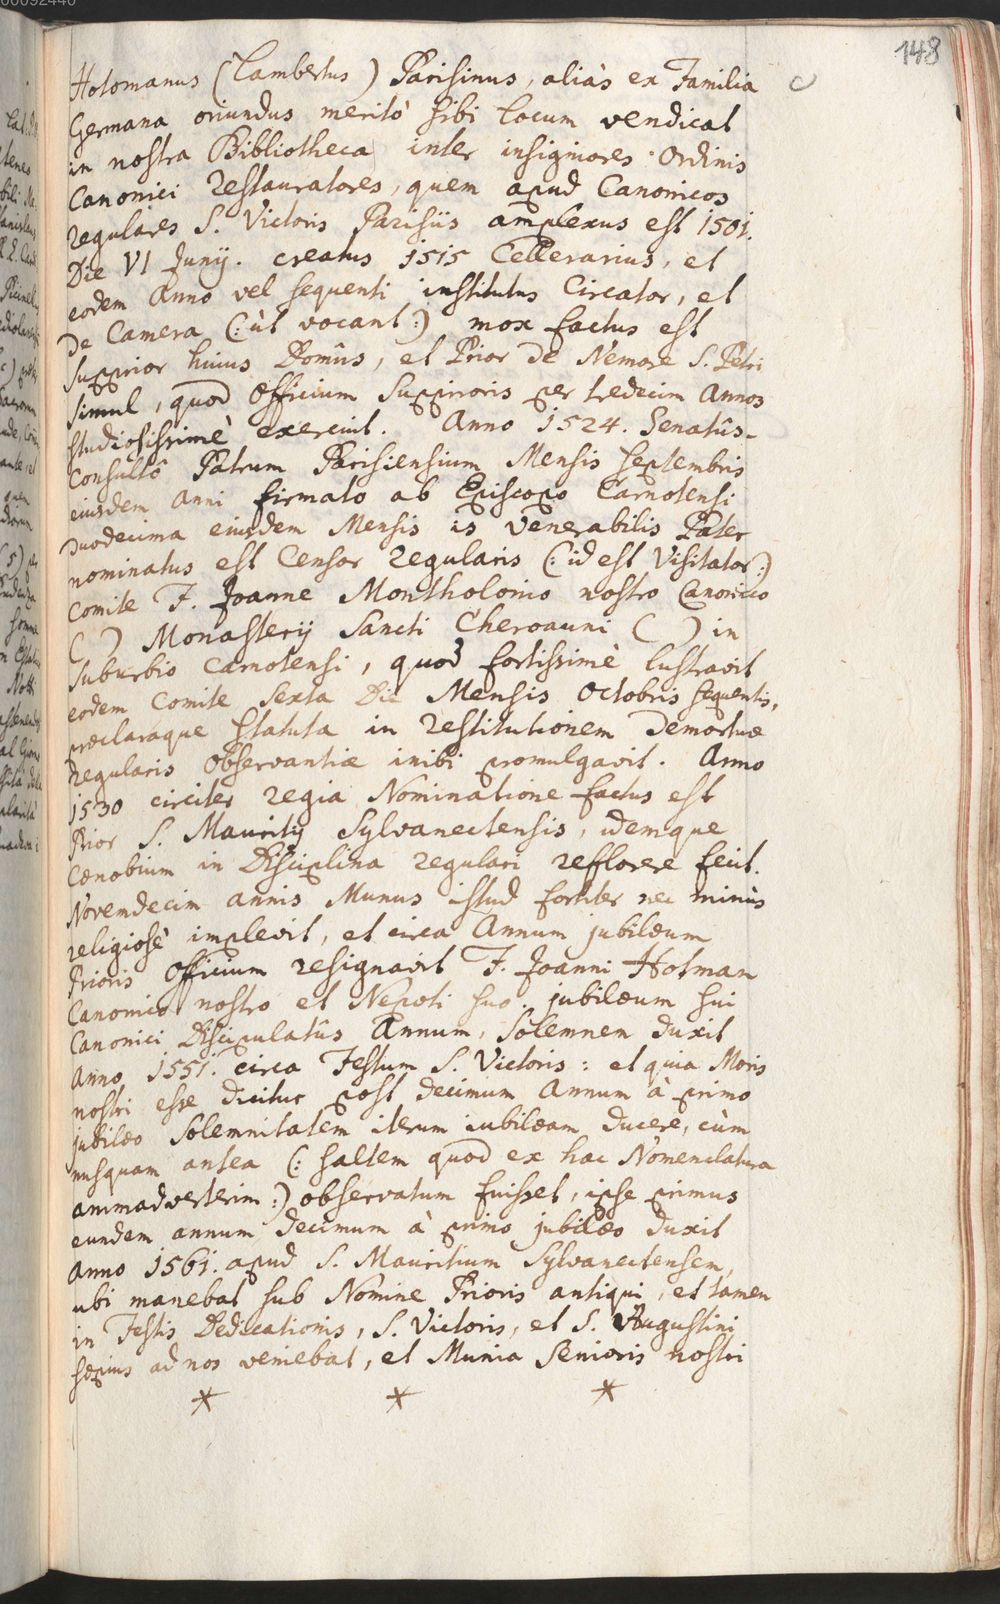 148
Hotomanus (Lambertus) Parisinus, aliàs ex Familia
Germana oriundus meritò sibi locum vendicat
in nostra Bibliotheca inter insigniores Ordinis
Canonici restauratores, quem apud Canonicos
regulares S. Victoris Parisiis amplexus est 1501.
Die VI Junij. creatus 1515 Cellerarius, et
eodem Anno vel sequenti institutus Circator, et
de Camera (: ùt vocant :) mox factus est
Supprior huius Domûs, et Prior de Nemore S. Petri
simul, quod Officium Supprioris per tredecim Annos
studiosissimè exercuit. Anno 1524. Senatûs-
Consultô Patrum Parisiensium Mensis Septembris
eiusdem anni firmato ab Episcopo Carnotensi
duodecima eiusdem Mensis is Venerabilis Pater
nominatus est Censor regularis (: id est Visitator :)
Comite F. Joanne Montholonio nostro Canonico
( ) Monasterij Sancti Cheroauni ( ) in
suburbio Carnotensi, quod fortissimè lustravit
eodem Comite Sexta Die Mensis Octobris sequentis,
præclaraque statuta in restitutionem demortuæ
regularis Observantiæ inibi promulgavit. Anno
1530 circiter regia Nominatione factus est
Prior S. Mauritij Sylvanectensis, idemque
Cœnobium in Disciplina regulari reflorere fecit.
Novemdecim annis Munus istud fortiter nec minùs
religiosè implevit, et circa Annum jubilæum
Prioris Officium resignavit F. Joanni Hotman
Canonico nostro et Nepoti suo. jubilæum sui
Canonici Discipulatûs Annum, Solemnem duxit
Anno 1551. circa Festum S. Victoris: et quia Moris
nostri esse dicitur post decimum Annum à primo
jubilæo Solemnitatem iterum iubilæam ducere, cùm
nusquam antea (: saltem quod ex hac Nomenclatura
animadverterim :) observatum fuisset, ipse primus
eundem annum decimum à primo jubilæo duxit
Anno 1561. apud S. Mauritium Sylvanectensem,
ubi manebat sub Nomine Prioris antiqui, et tamen
in Festis Dedicationis, S. Victoris, et S. Augustini
sæpius ad nos veniebat, et Munia Senioris nostri
* * *